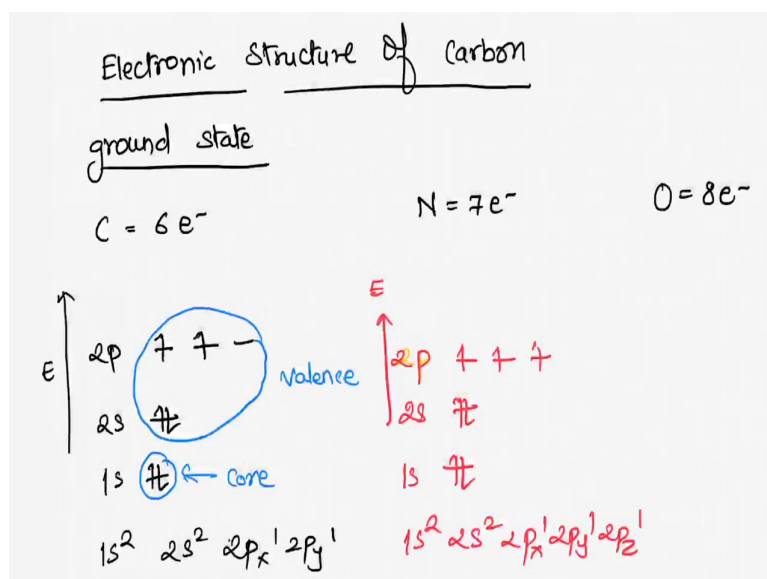 Electronic Structure Of Carbon
ground state
C = 6e⁻ N = 7e⁻ O = 8e⁻
E
2p
2s
1s
Valence
Core
1s² 2s² 2pₓ¹ 2py¹
E
2p
2s
1s
1s² 2s² 2pₓ¹ 2py¹ 2pz¹